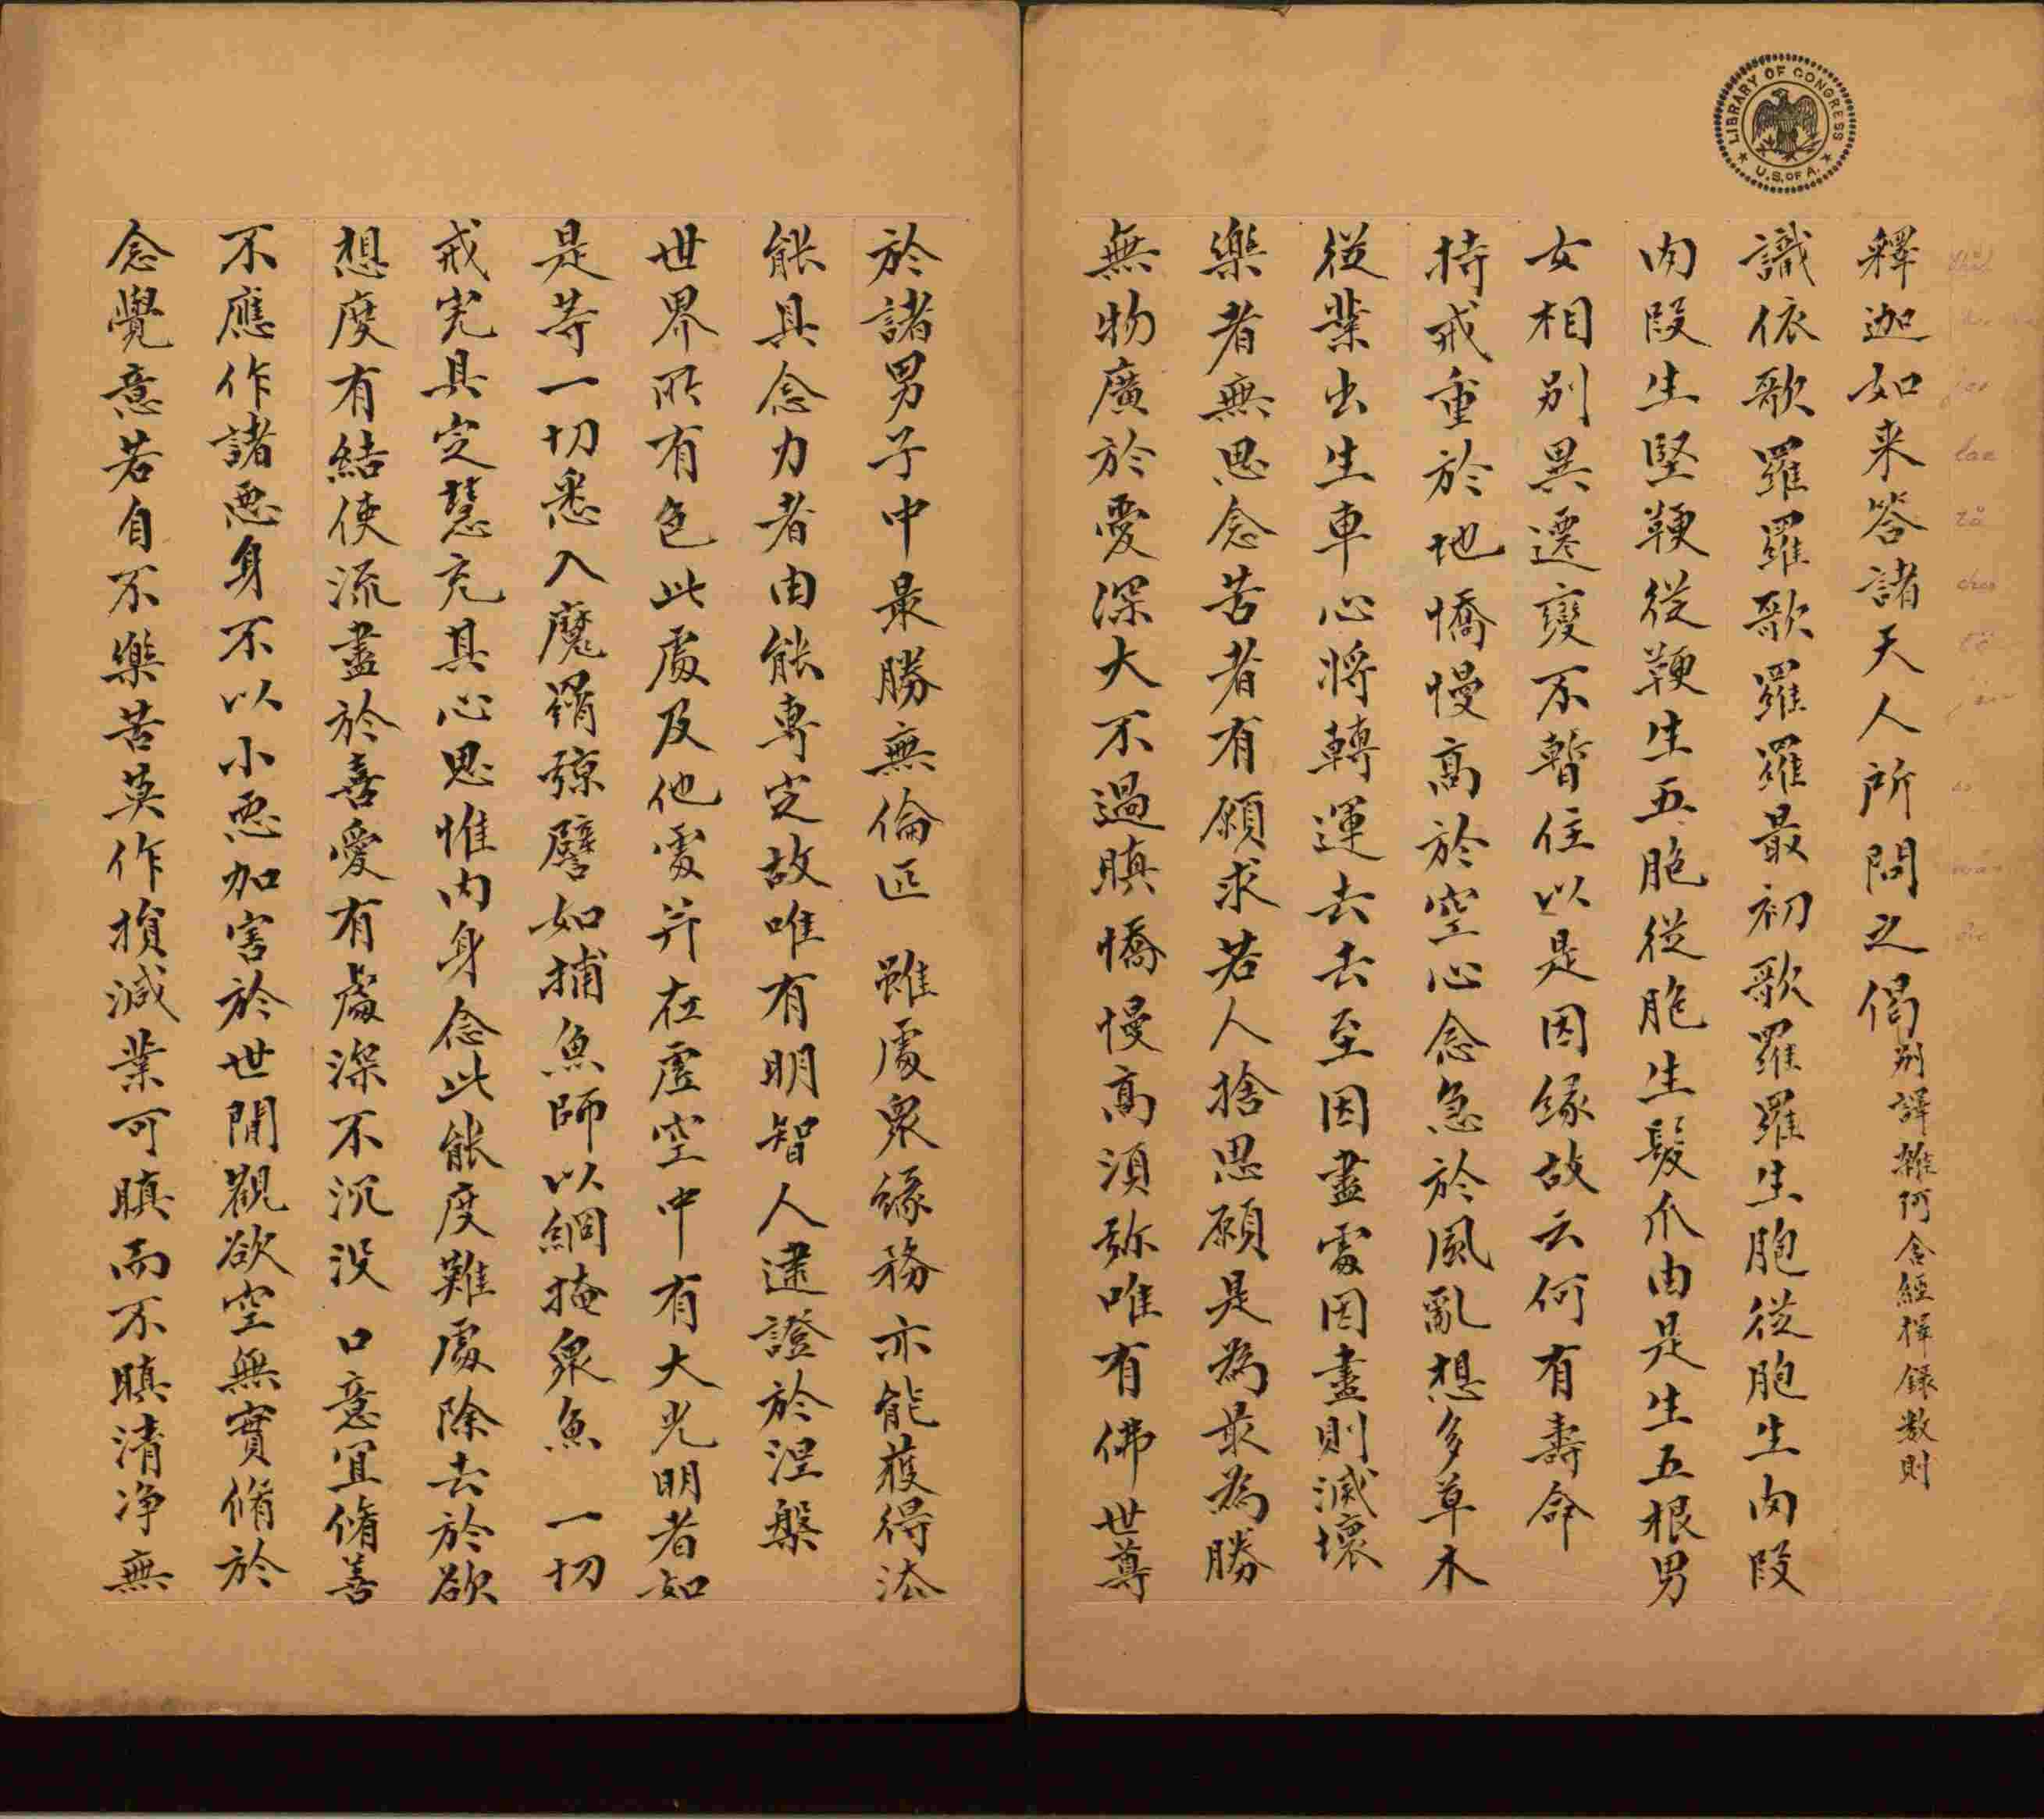 釋迦如来答諸天人所問之偈別譯雜阿含經擇録数則
識依歌羅羅歌羅羅最初歌羅羅生胞從胞生肉段
肉段生堅鞕從鞕生五胞從胞生髮爪由是生五根男
女相別異遷變不暫住以是因緣故云何有壽命
持戒重於地憍慢高於空心念急於風亂想多草木
從業出生車心將轉運去去至因盡處因盡則滅壞
樂者無思念苦者有願求若人捨思願是為最為勝
無物廣於愛深大不過瞋憍慢高須弥唯有佛世尊
於諸男子中最勝無倫匹 雖處眾緣務亦能獲得法
能具念力者由能專定故唯有明智人逮證於涅槃
世界所有色此處及他處并在虛空中有大光明者如
是等一切悉入魔羂弶譬如捕魚師以網掩眾魚 一切
戒完具定慧充其心思惟内身念此能度難處除去於欲
想度有結使流盡於喜愛有處深不沉没 口意宜脩善
不應作諸惡身不以小惡加害於世間觀欲空無實脩於
念覺意若自不樂苦莫作損減業可瞋而不瞋清净無
LIBRARY OF CONGRESS
U.S. OF A.